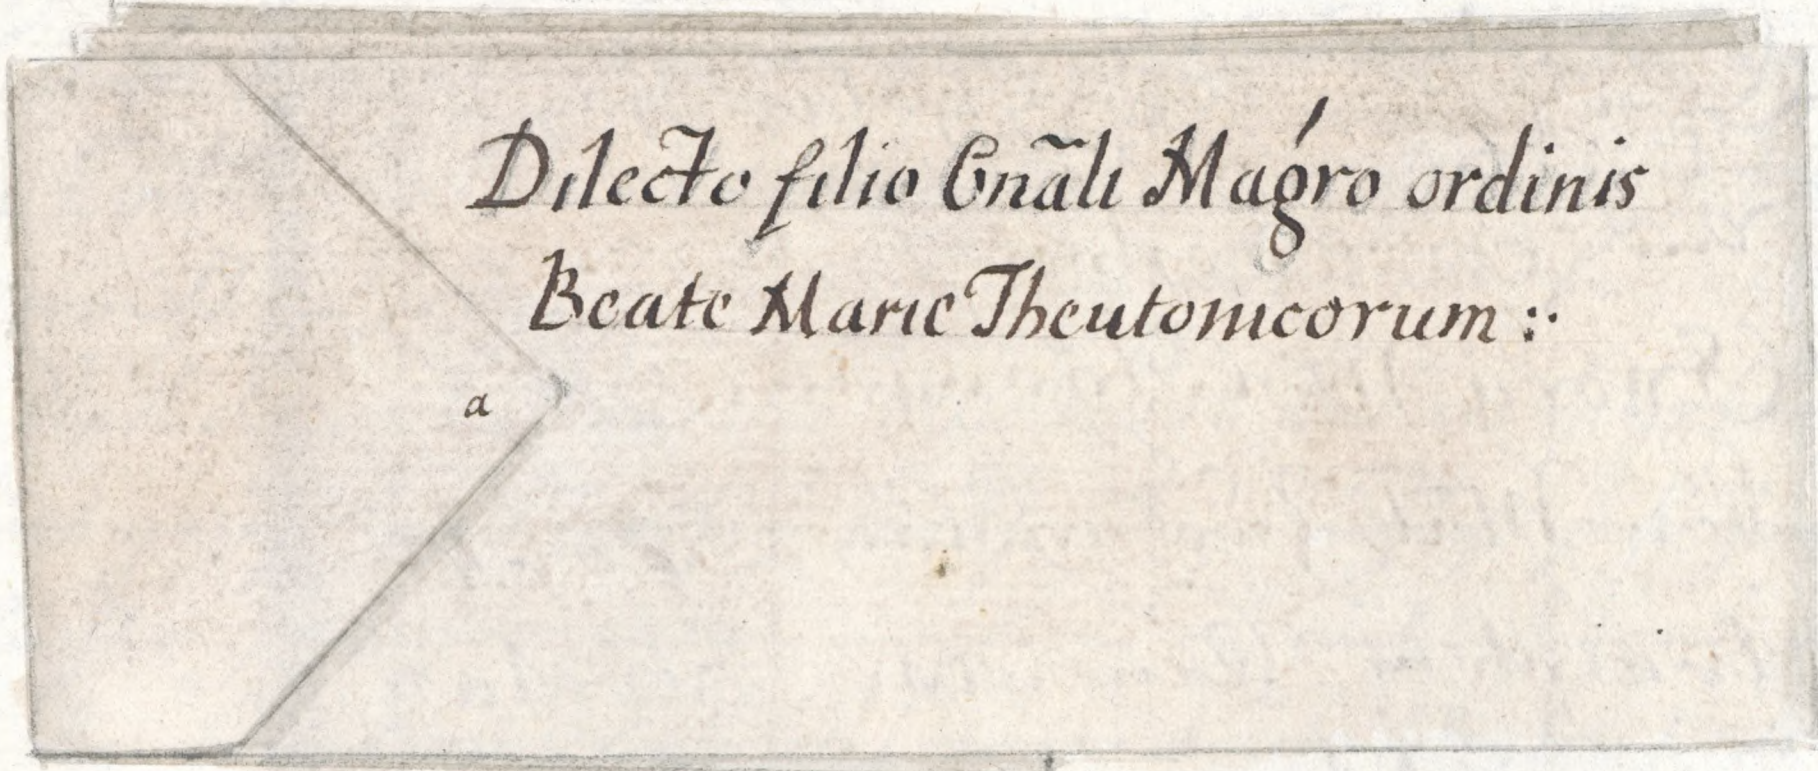 Dilecto filio Gnãli Magŕo ordinis
Beate Marie Theutonicorum :·
a